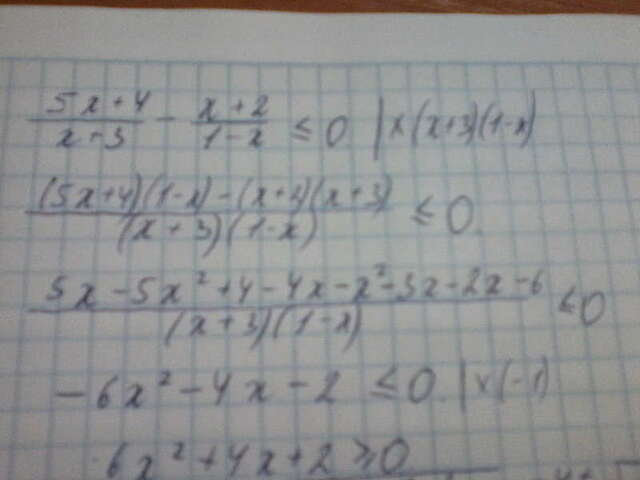 (5x+4)/(x+3) - (x+2)/(1-x) ≤ 0 | ×(x+3)(1-x)
((5x+4)(1-x)-(x+2)(x+3))/((x+3)(1-x)) ≤ 0
(5x-5x²+4-4x-x²-3x-2x-6)/((x+3)(1-x)) ≤ 0
-6x²-4x-2 ≤ 0 | ×(-1)
6x²+4x+2 ≥ 0